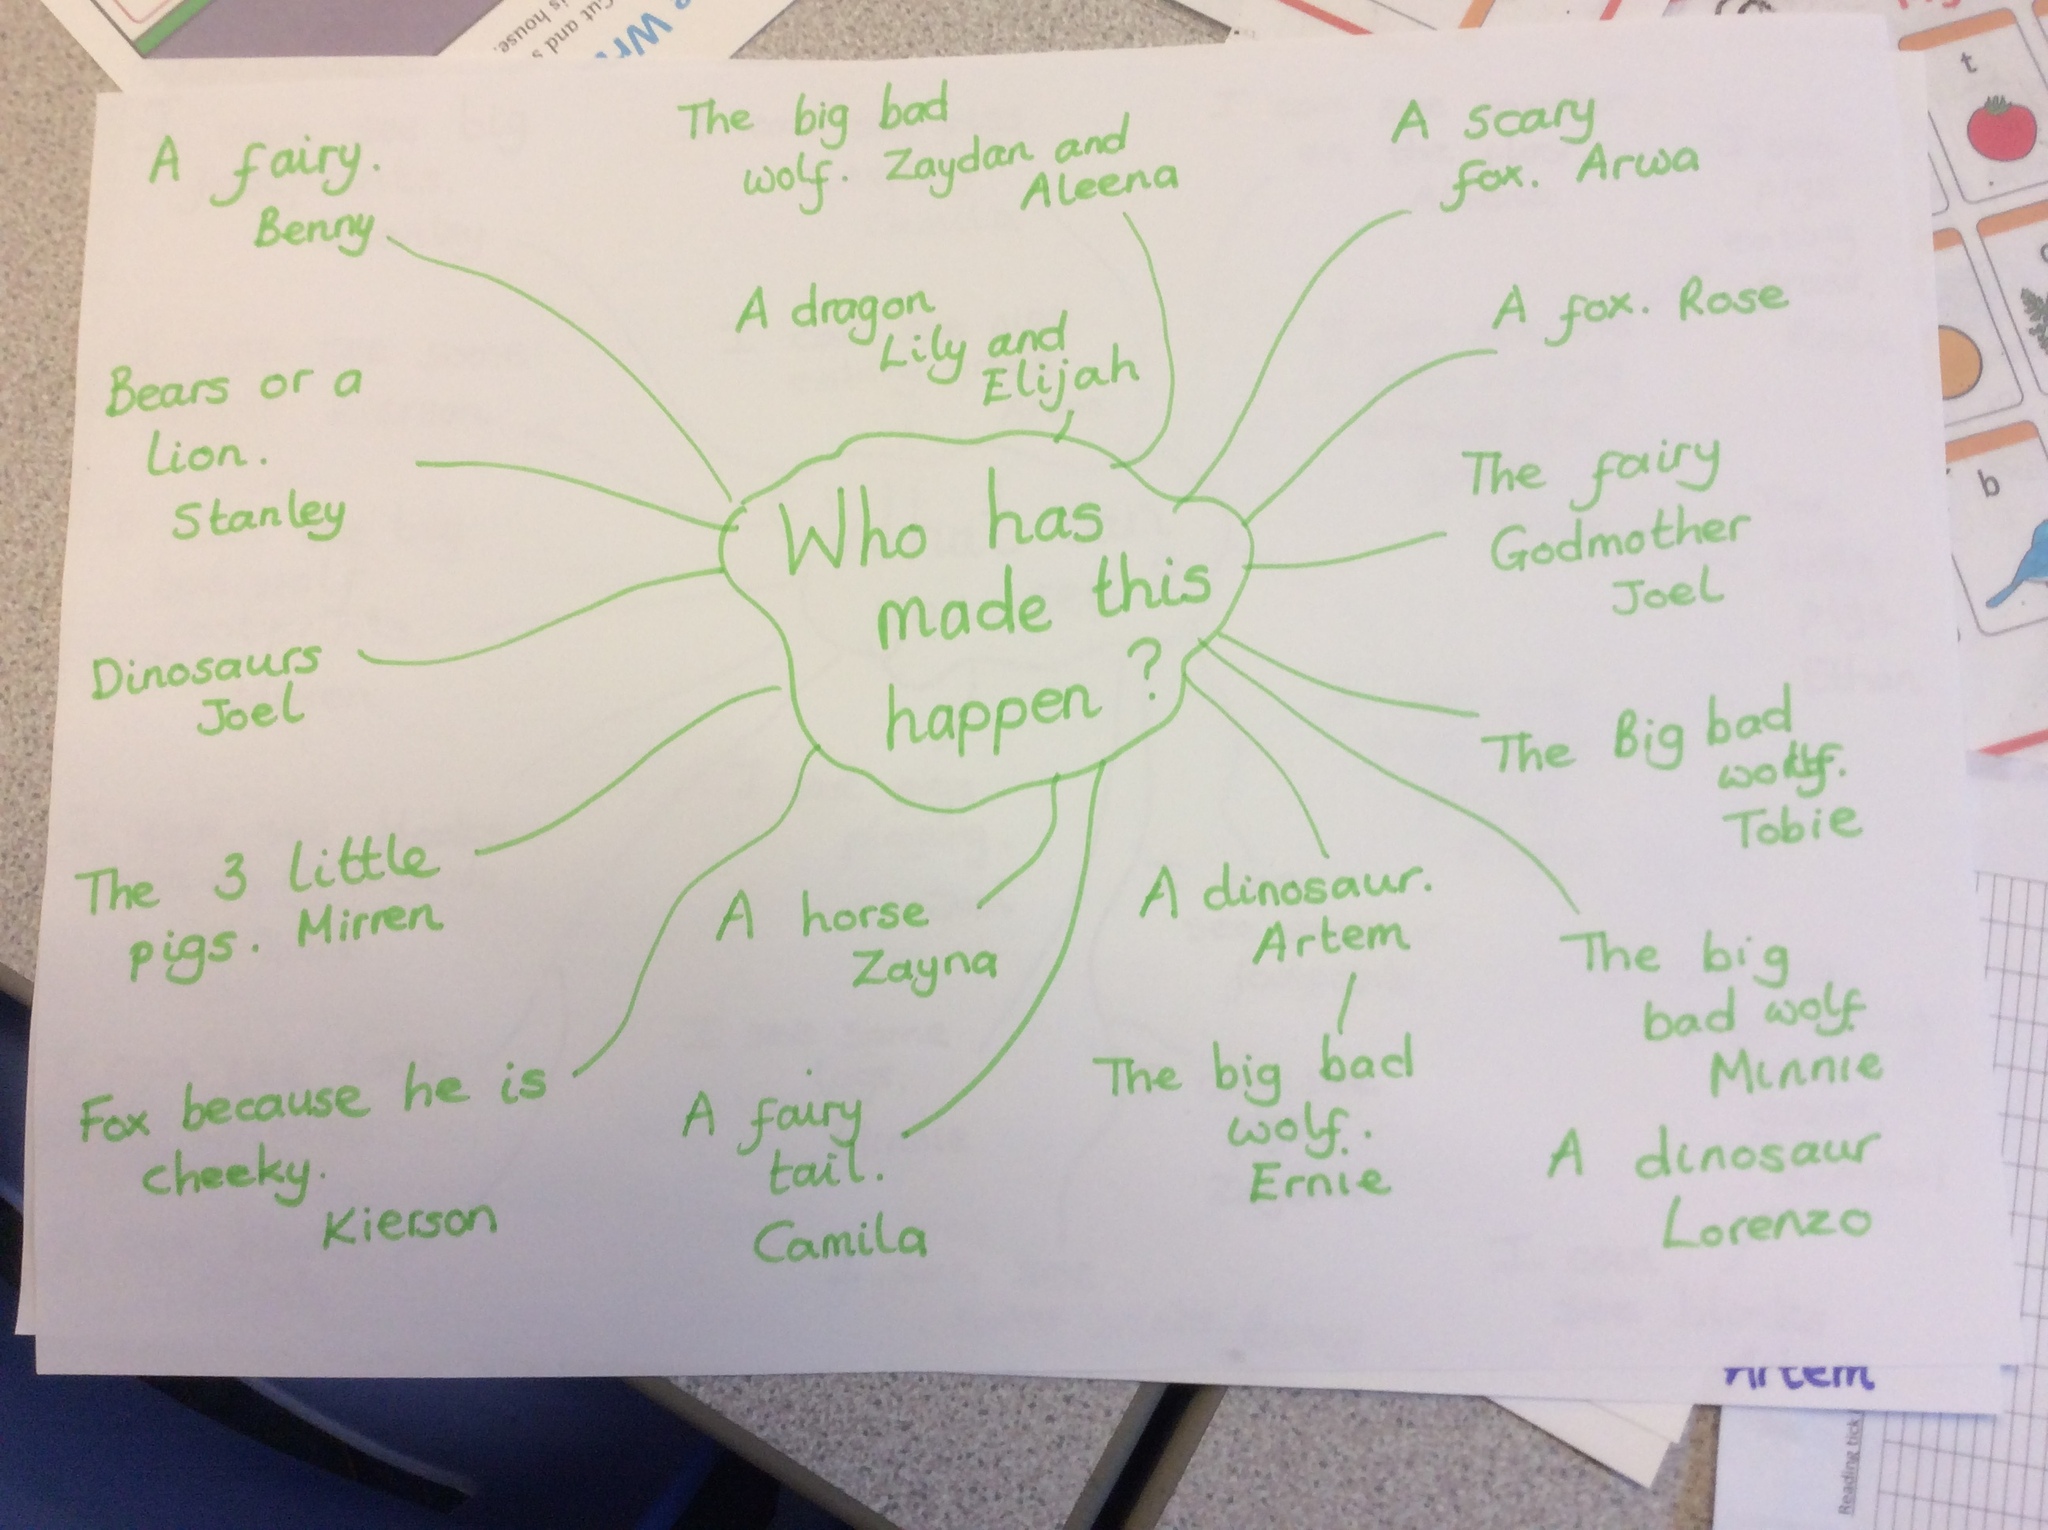 A fairy.
Benny
The big bad
wolf. Zaydan and
Aleena
A scary
fox. Arwa
A dragon
Lily and
Elijah
A fox. Rose
Bears or a
Lion.
Stanley
The fairy
Godmother
Joel
Who has
made this
happen ?
Dinosaurs
Joel
The Big bad
wolf.
Tobie
The 3 little
pigs. Mirren
A horse
Zayna
A dinosaur.
Artem
The big
bad wolf
Minnie
Fox because he is
cheeky.
Kierson
A fairy
tail.
Camila
The big bad
wolf.
Ernie
A dinosaur
Lorenzo
t
b
cut and s
is house.
e Wr
Artem
Reading tick